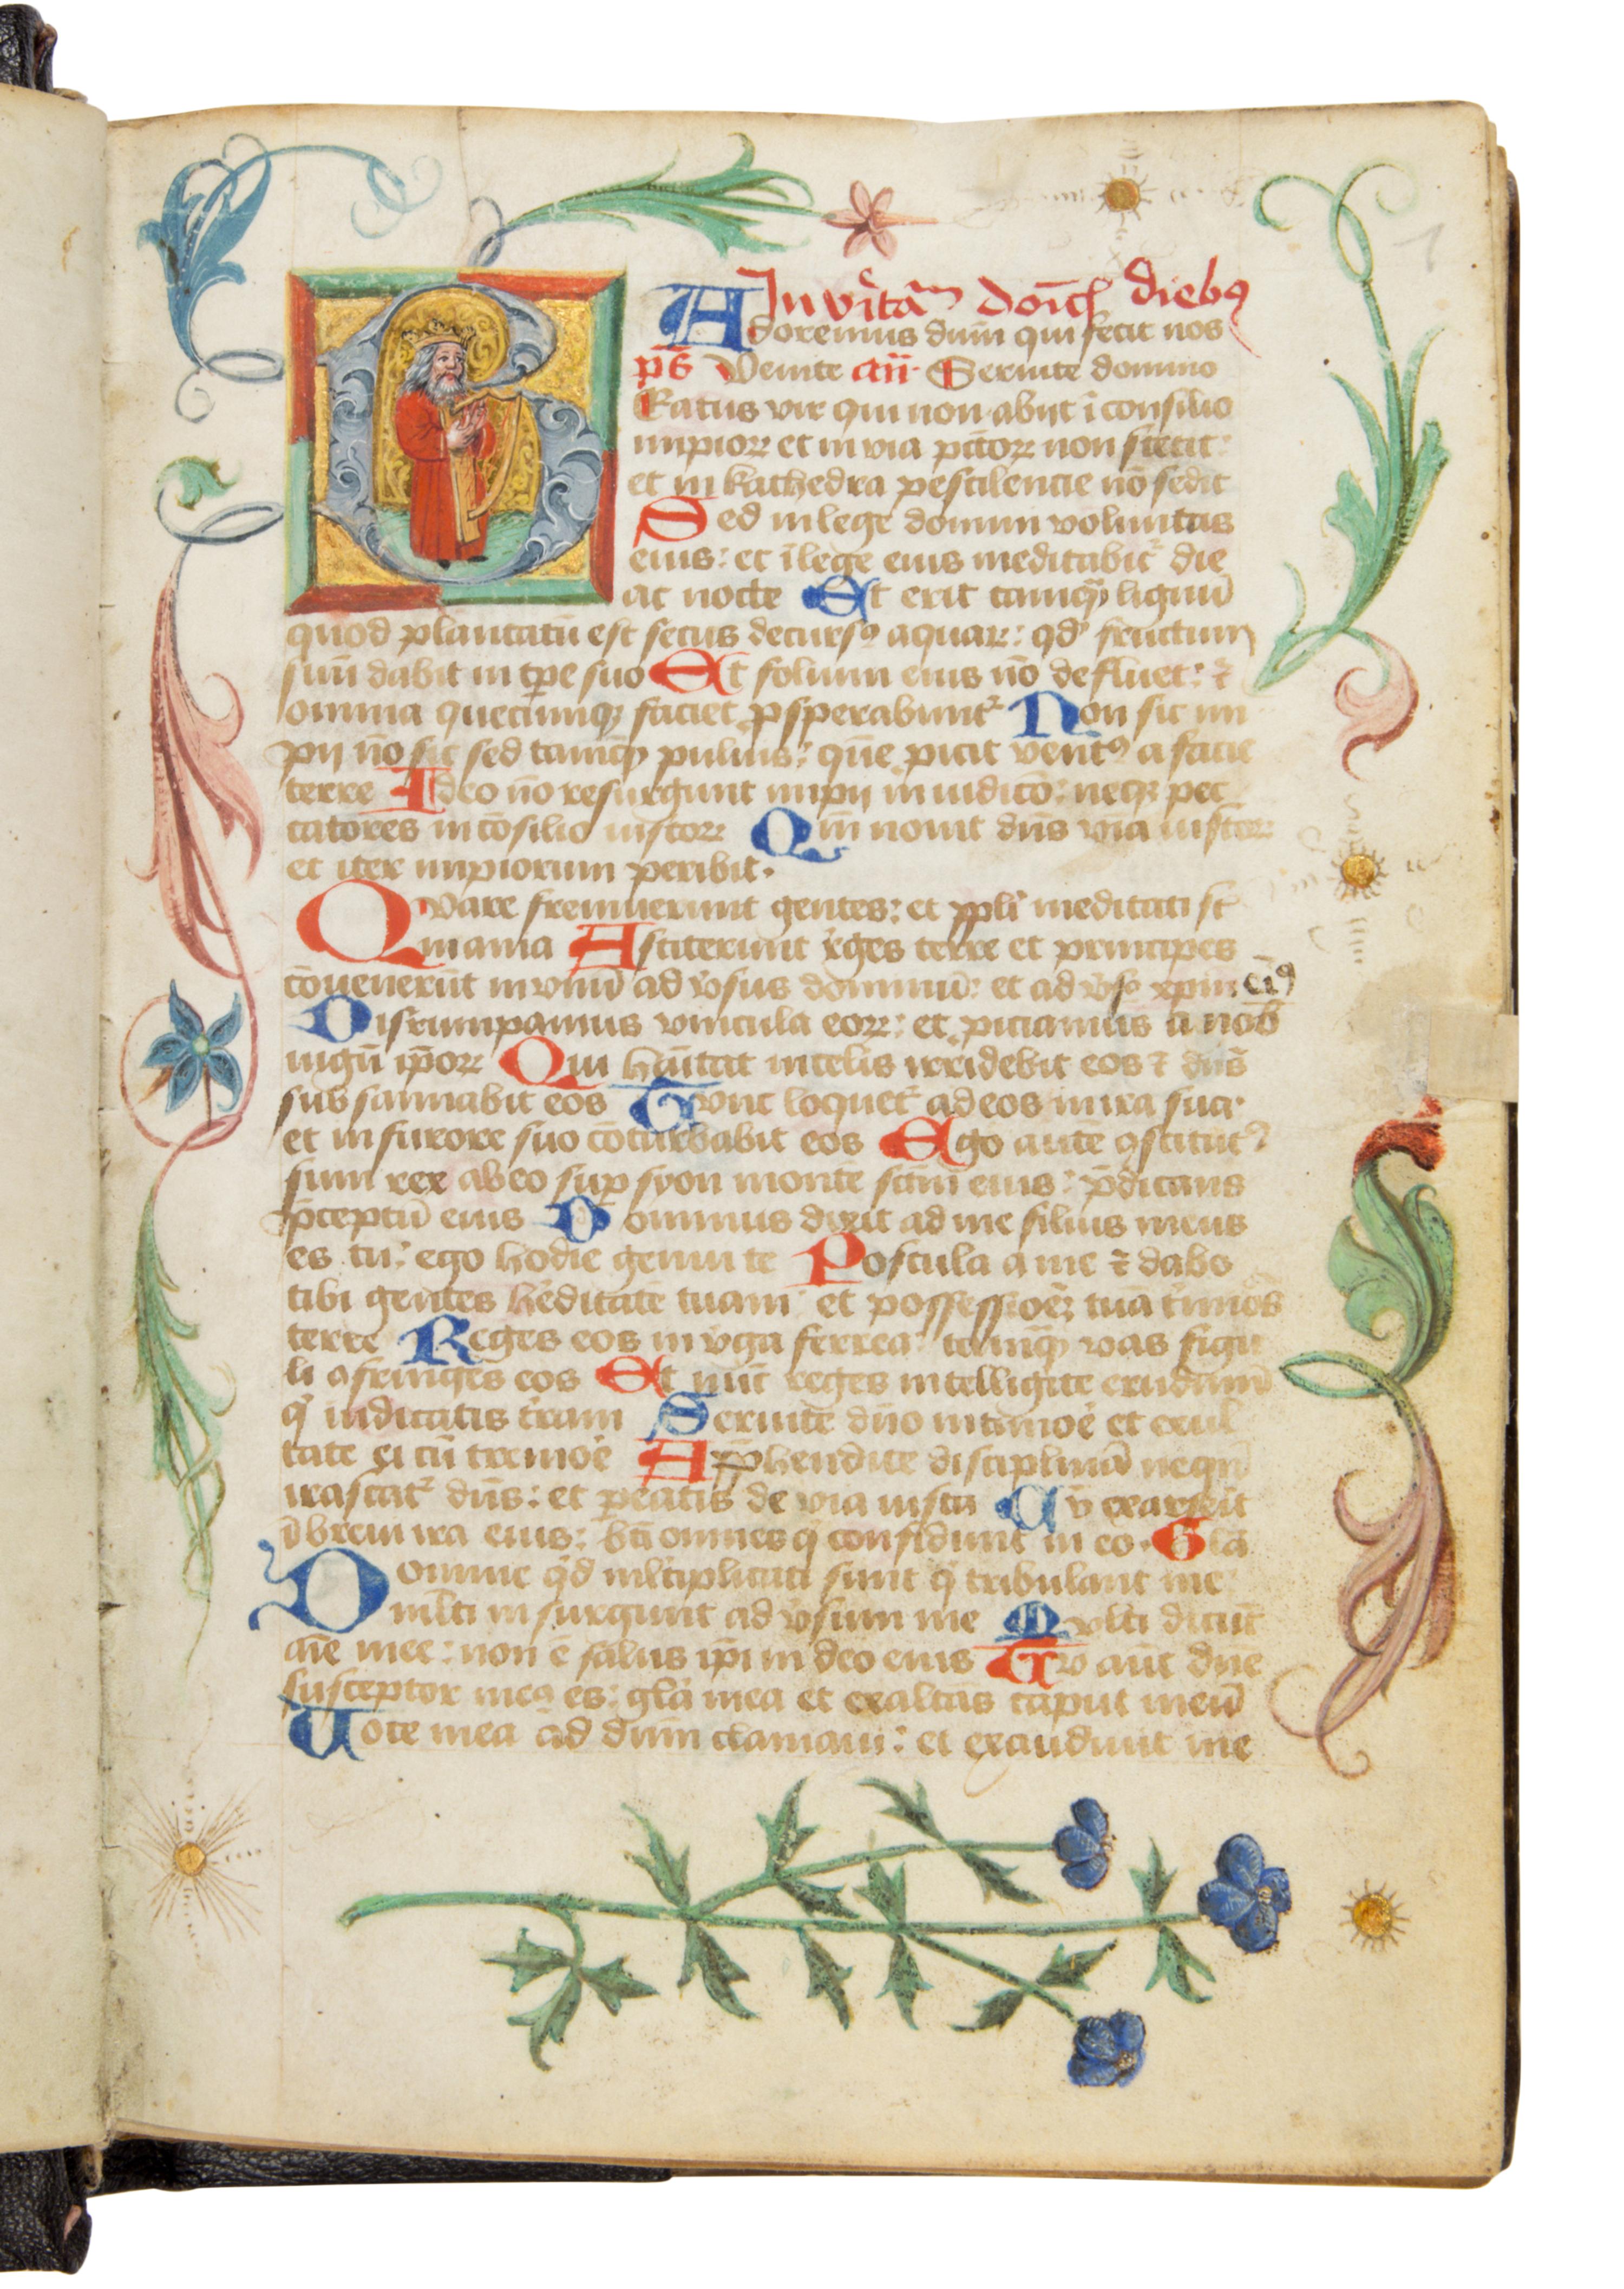 Invitam doīcꝭ diebꝯ
Adoremus dūm qui fecit nos
pꝭ Venite añ. Seruite domino
Eatus vir qui non abijt ī consilio
impioꝝ et in via pc̄toꝝ non stetit:
et in kathedra pestilencie nō sedit
Sed in lege domini voluntas
eius: et ī lege eius meditabit᷑ die
ac nocte Et erit tamqꝫ lignū
quod plantatū est secus decursꝯ aquaꝝ: qd̓ fructum
suū dabit in tp̄e suo Et folium eius nō defluet: ⁊
omnia quecumqꝫ faciet ꝓsperabunt᷑ Non sic im
pij nō sic sed tamqꝫ puluis: quē ꝓicit ventꝯ a facie
terre Ideo nō resurgunt impij in iudicō: neqꝫ pec
catores in cōsilio iustoꝝ Qm̄ nouit dn̄s viā iustoꝝ
et iter impiorum peribit.
Qvare fremuerunt gentes: et ppl̓i meditati st̄
inania Astiterunt reges terre et principes
cōuenerūt in vnū ad v̓sus dominū: et ad v̓sꝯ xpm̄ eiꝯ
Disrumpamus vincula eoꝝ: et ꝓiciamus a nob̄
iugū ip̄oꝝ Qui hītat in celis irridebit eos ⁊ dn̄s
subsannabit eos Tvnc loquet᷑ ad eos in ira sua.
et in furore suo cōturbabit eos Ego autē ꝯstitutꝯ
sum rex ab eo suꝑ syon montē sc̄m eius: p̄dicans
p̄ceptū eius Dominus dixit ad me filius meus
es tu: ego hodie genui te Postula a me ⁊ dabo
tibi gentes he̓ditatē tuam: et possessioēꝫ tuā t̓minos
terre Reges eos in v̓ga ferrea: tamqꝫ vas figu
li ꝯfringes eos Et nūc reges intelligite erudimī
q̓ iudicatis t̓ram Seruite dn̄o in timoe̓ et exul
tate ei cū tremoe̓ Apphendite disciplinā nequā
irascat᷑ dn̄s: et ꝑeatis de via iusta Cv̄ exarserit
ī breui ira eius: bt̄i omnes q̓ confidunt in eo. Glā
Domine qͥd ml̓tiplicati sunt q̓ tribulant me
ml̓ti in surgunt ad v̓sum me Mvlti dicūt
aīe mee: non ē salus ip̄i in deo eius Tv aūt dn̄e
susceptor meꝯ es: gl̓a mea et exaltās caput meū
Uoce mea ad dūm clamaui: et exaudiuit me